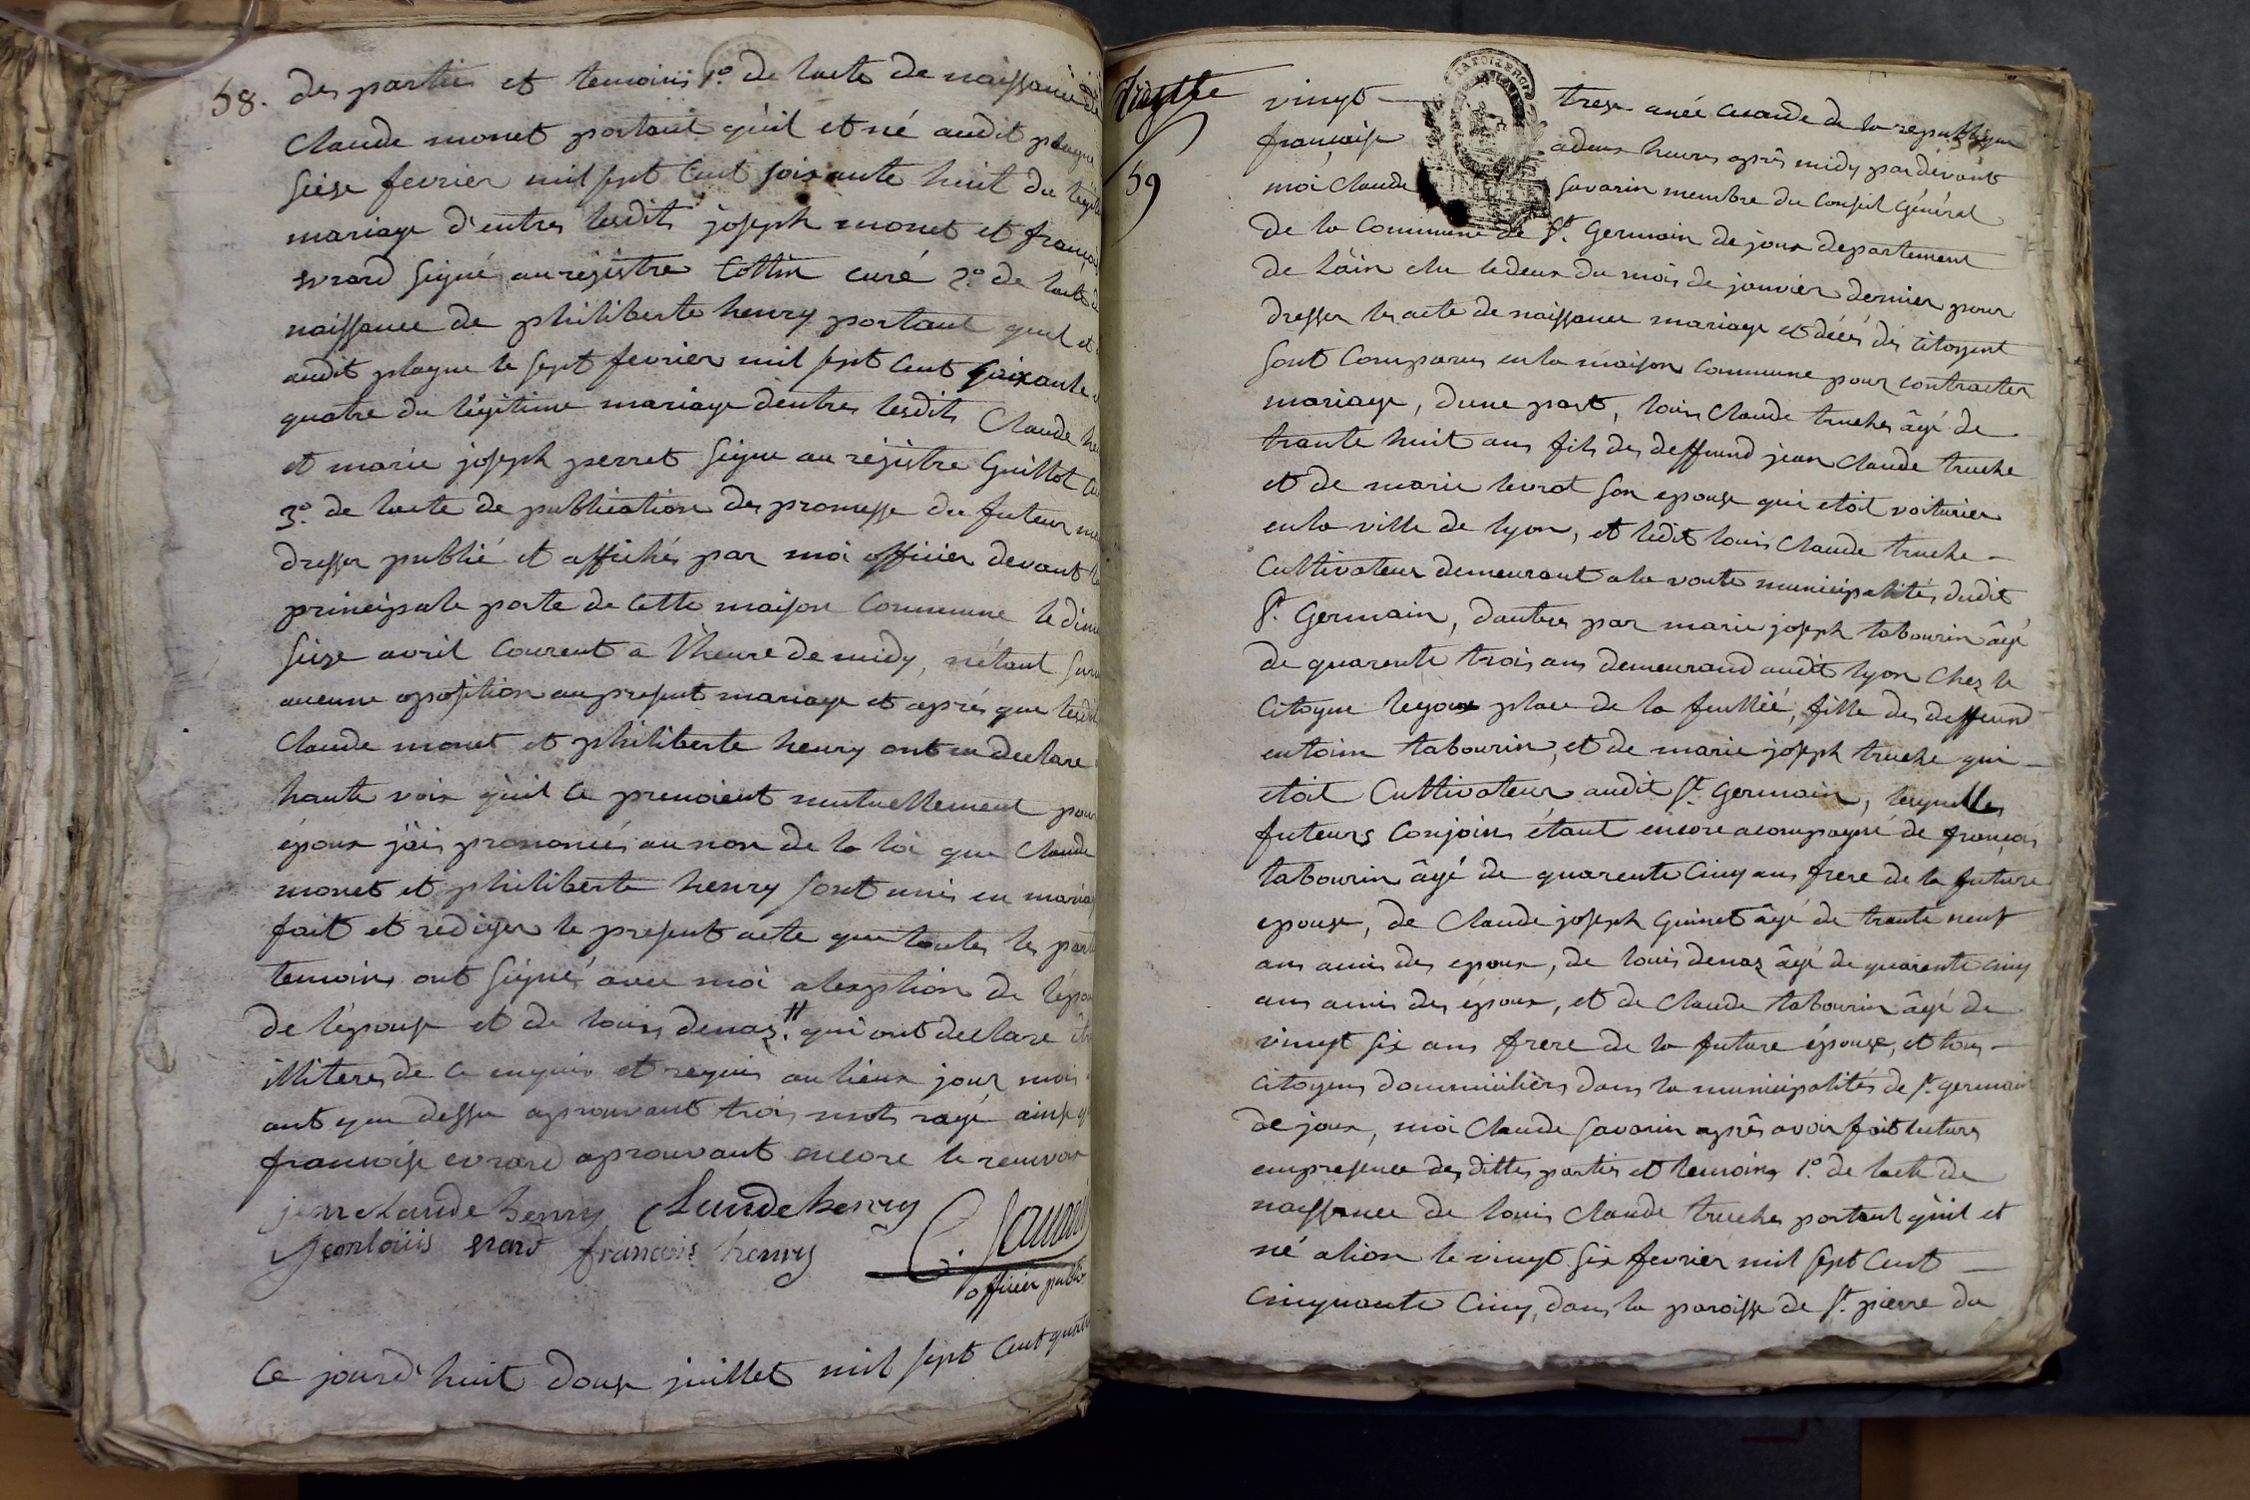 58.
des parties et temoins 1.o de lacte de naissance de
Claude monet portant qu'il et né audit plagne
seise fevrier mil sept Cent soixante huit du
mariage d'entres lesdits joseph monet et
evrard signé au registre Collin curé 2.o de lacte de
naissance de philiberte henry portant quel et
audit plagne le sept fevrier mil sept Cent soixante
quatre du légitime mariage dentres lesdits Claude
et marie joseph perret signe au registre Guillot
3.o de lacte de publication des promesse du futeur
dresser publié et affiché par moi officier devant
principale porte de cette maison Commune le
seise avril Courent a l'heure de midy, nétant
aucune oposition au present mariage et aprés que
Claude monet et philiberte henry ont eu declare
haute voix qu'il Ce prenoient mutuellement pour
époux j'ais prononcés au nom de la loi que Claude
monet et philiberte henry sont unis en
fait et rédiger le present acte que toutes les
temoins ont signé avec moi alexption de
de l'épouse et de louis denaz # qui ont declare
illiteres de Ce enquis et requis au lieux jour mois
ant que dessu aprouvant trois mots rayé
francoise evrard aprouvant encore le renvoix
jean claude henry Claude henry
Jean loüis evard francois henry
officier public
Ce jourd'huit douse juillet mil sept Cent
trantte
59
vingt trese anée seconde de la republique
francaise a deux heures aprês midy pardevant
moi Claude savarin membre du Conseil Général
de la Commune de St. Germain de joux departement
de l'ain elu ledeux du mois de janvier dernier pour
dresser les acte de naissance mariage et décés des Citoyent
sont Comparus en la maison Commune pour contracter
mariage, dune part, louis Claude truche âgé de
trante huit ans fils des deffeund jean Claude truche
et de marie levrat son epouse qui etoit voiturier
en la ville de lyon, et ledit louis Claude truche
Cultivateur demeurant a la voute municipalités dudit
St. Germain, dautres par marie joseph tabourin âgé
de quarente trois ans demeurand audit lyon Chez le
Citoyen place de la feuilliée, fille des deffeund
entoine tabourin, et de marie joseph truche qui
etoit Cultivateur audit St. Germain, lesquelles
futeurs Conjoins étant encore acompagné de francois
tabourin âgé de quarente Cinq ans frere de la future
epouse, de Claude joseph Guinet âgé de trante neuf
ans amis des epoux, de louis denaz âgé de quarente Cinq
ans amis des époux, et de Claude tabourin âgé de
vingt six ans frere de la future épouse, et tous
Citoyens dommiciliers dans la municipalités de St. germain
de joux, moi Claude savarin aprês avoir fait lecture
en presence des dittes parties et temoins 1.o de lacte de
naissance de louis Claude truche portant qu'il et
né alion le vingt six fevrier mil sept Cent
Cinquante Cinq, dans la paroisse de St. pierre du